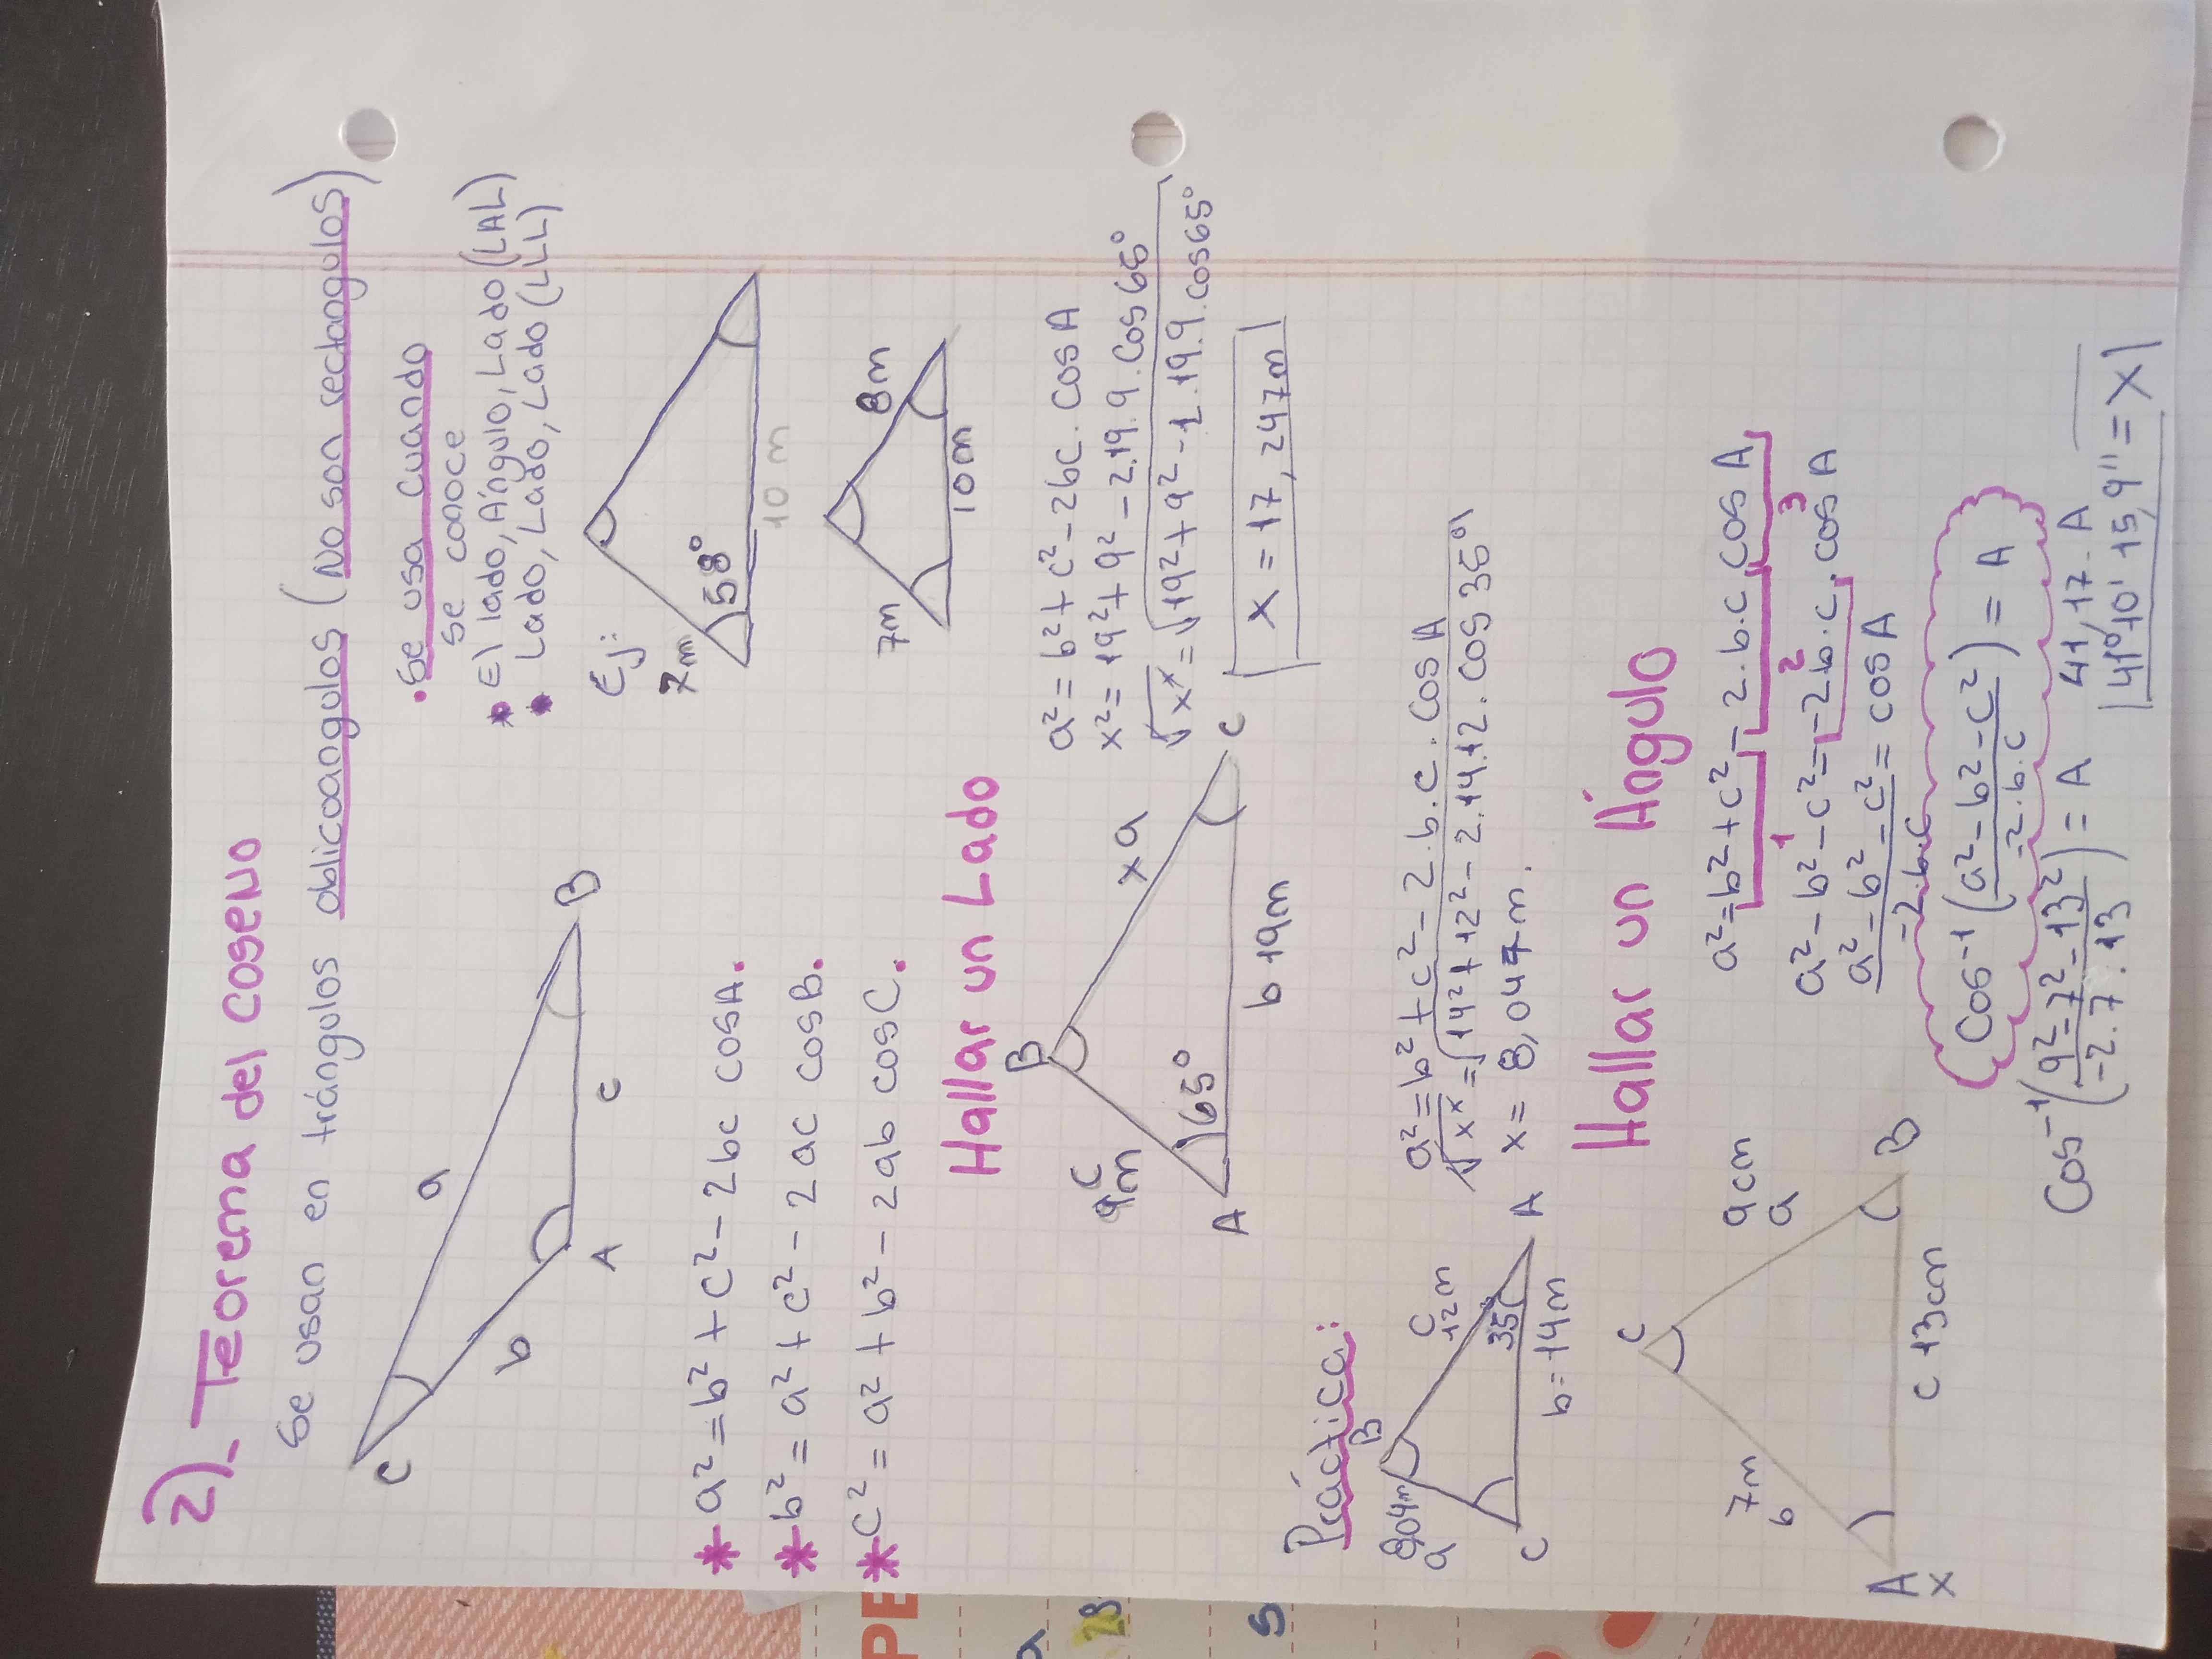 2)_ Teorema del coseno
Se usan en trángulos oblicoangulos (No son rectangulos)
C
a
b
A
c
B
• Se usa cuando
se conoce
* El lado, Ángulo, Lado (LAL)
* Lado, Lado, Lado (LLL)
Ej:
7m
58°
10 m
7m
8m
10m
* a² = b² + c² - 2bc cosA.
* b² = a² + c² - 2ac cosB.
* c² = a² + b² - 2ab cosC.
Hallar un Lado
B
C
9m
x a
65°
A
b 19m
C
a² = b² + c² - 2bc . cos A
x² = 19² + 9² - 2.19.9.cos 65°
√x² = √19² + 9² - 2.19.9.cos65°
x = 17,247m
Práctica:
8,04m
a
B
C
12m
35°
A
C
b=14m
a² = b² + c² - 2.b.c.cos A
√x² = √14² + 12² - 2.14.12.cos 35°
x = 8,047m.
Hallar un Ángulo
C
7m
b
9cm
a
A
x
c 13cm
B
a² = b² + c² - 2.b.c.cos A
1 2 3
a² - b² - c² = -2b.c.cos A
a² - b² - c² = cos A
-2.b.c
Cos⁻¹ (a² - b² - c²) = A
-2.b.c
Cos⁻¹ (9² - 7² - 13²) = A
-2.7.13
41,17 - A
41° 10' 15,9'' = x
PE
28
5